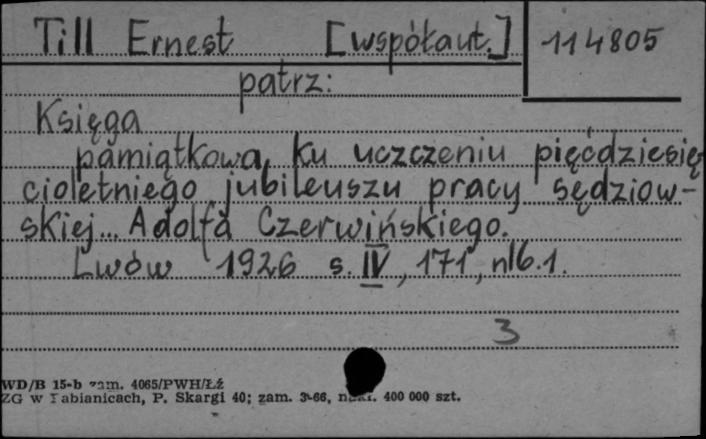 Till Ernest [współaut.] 114805
patrz:
Księga
pamiątkowa ku uczczeniu pięćdziesię
cioletniego jubileuszu pracy sędziow-
skiej... Adolfa Czerwińskiego.
Lwów 1926 s. IV, 171, nlb.1.
3
WD/B 15-b zam. 4065/PWH/Łż
ZG w Pabianicach, P. Skargi 40; zam. 3-66, nakł. 400 000 szt.